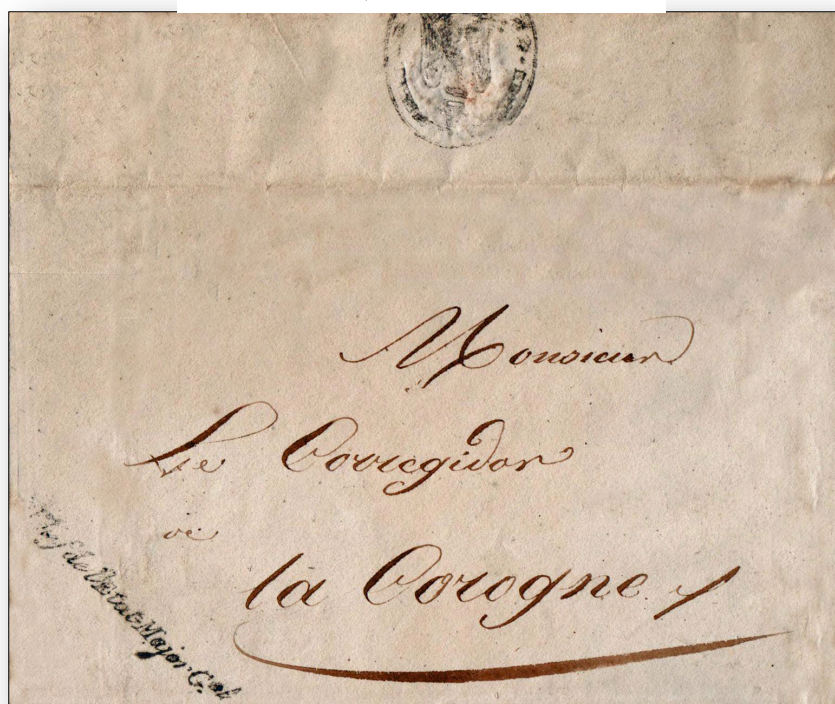 Monsieur
Le Corregidor
de
la Corogne
Chef de l'Etat Major Gal